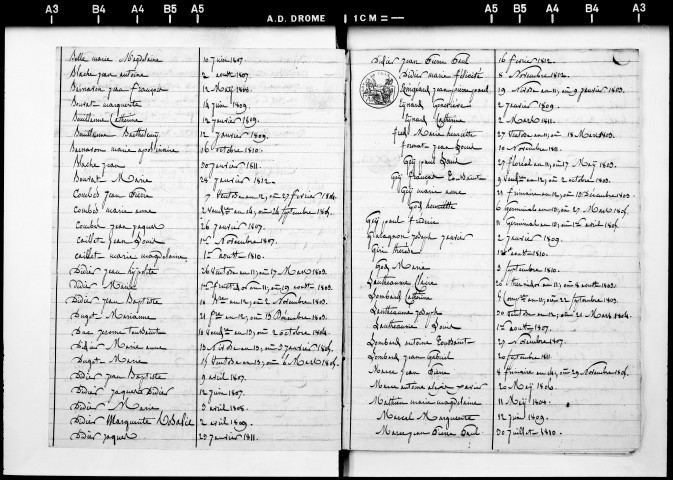 A3 B4 A4 B5 A5 A.D. DROME 1CM = A5 B5 A4 B4 A3
Belle marie Magdelaine 10 juin 1807.
Blache jean antoine 2 aoust 1807.
Bernardon jean françois 12 May 1808.
Bourat marguerite 14 juin 1809.
Bouillanne Catherine 12 janvier 1809.
Bouillanne Barthelemy 12 janvier 1809.
Bernardon marie apollinaire 16 octobre 1810.
Blache jean 20 janvier 1811.
Bourat Marie 28 janvier 1812.
Combet jean Pierre 7 Ventose an 12, ou 27 fevrier 1804.
Combet marie anne
Combet jean jaques 26 janvier 1807.
Caillet jean Louis 1er Novembre 1807.
Caillet marie magdelaine 1er aoust 1810.
Didier jean hypolite 26 Ventose an 11, ou 17 Mars 1803.
Didier Marie 1er fructidor an 11, ou 19 aoust 1803.
Didier jean Baptiste an 12, ou 2 Novembre 1803.
Dugot Marianne 21 an 12, ou 13 Décembre 1803.
Duc jerome toussaint 10 Vend.re an 13, ou 2 octobre 1804.
Didier Marie anne 13 Nivose an 13, ou 3 janvier 1805.
Dugot Marie 15 Ventose an 13, ou 6 Mars 1805.
Didier jean Baptiste 9 avril 1807.
Didier jaques Didier 12 juin 1807.
Didier Marie 3 avril 1808.
Didier Marguerite Rosalie 2 avril 1809.
Didier jaques 29 janvier 1811.
Didier jean Pierre Paul 16 fevrier 1812.
Didier marie félicité 8 Novembre 1812.
jean pierre paul 19 Nivose an 11, ou 9 janvier 1803.
Eynard Genevieve 2 janvier 1809.
Eynard Catherine 2 Mars 1811.
Marie henriette 27 Ventose an 11, ou 18 Mars 1803.
jean Louis 10 Novembre 1811.
Gey paul Louis 27 floreal an 11, ou 17 May 1803.
Gey François Toussaint 9 Vend.re an 12, ou 2 octobre 1803.
Gey marie anne 21 frimaire an 12, ou 13 Décembre 1803.
henriette 6 Germinal an 13, ou 27 Mars 1805.
Gey paul frederic 11 Germinal an 13, ou 1er avril 1805.
Galagnon joseph xavier 2 janvier 1809.
therese aoust 1810.
Marie 3 septembre 1810.
Lantheaume Claire thermidor an 11, ou 8 aoust 1803.
Lombard Catherine an 11, ou 22 septembre 1803.
Lantheaume joseph 30 Ventose an 12, ou 21 Mars 1804.
Lantheaume Louis 1er aoust 1807.
Lombard antoine Toussaint 29 Novembre 1807.
Lombard jean Gabriel 20 septembre 1811.
Marce jean Pierre 8 frimaire an 14, ou 29 Novembre 1805.
Marce antoine xavier 20 May 1806.
Mathieu marie magdelaine 11 May 1808.
Marcel Marguerite 12 juin 1809.
Marce jean Pierre Paul 30 juillet 1810.